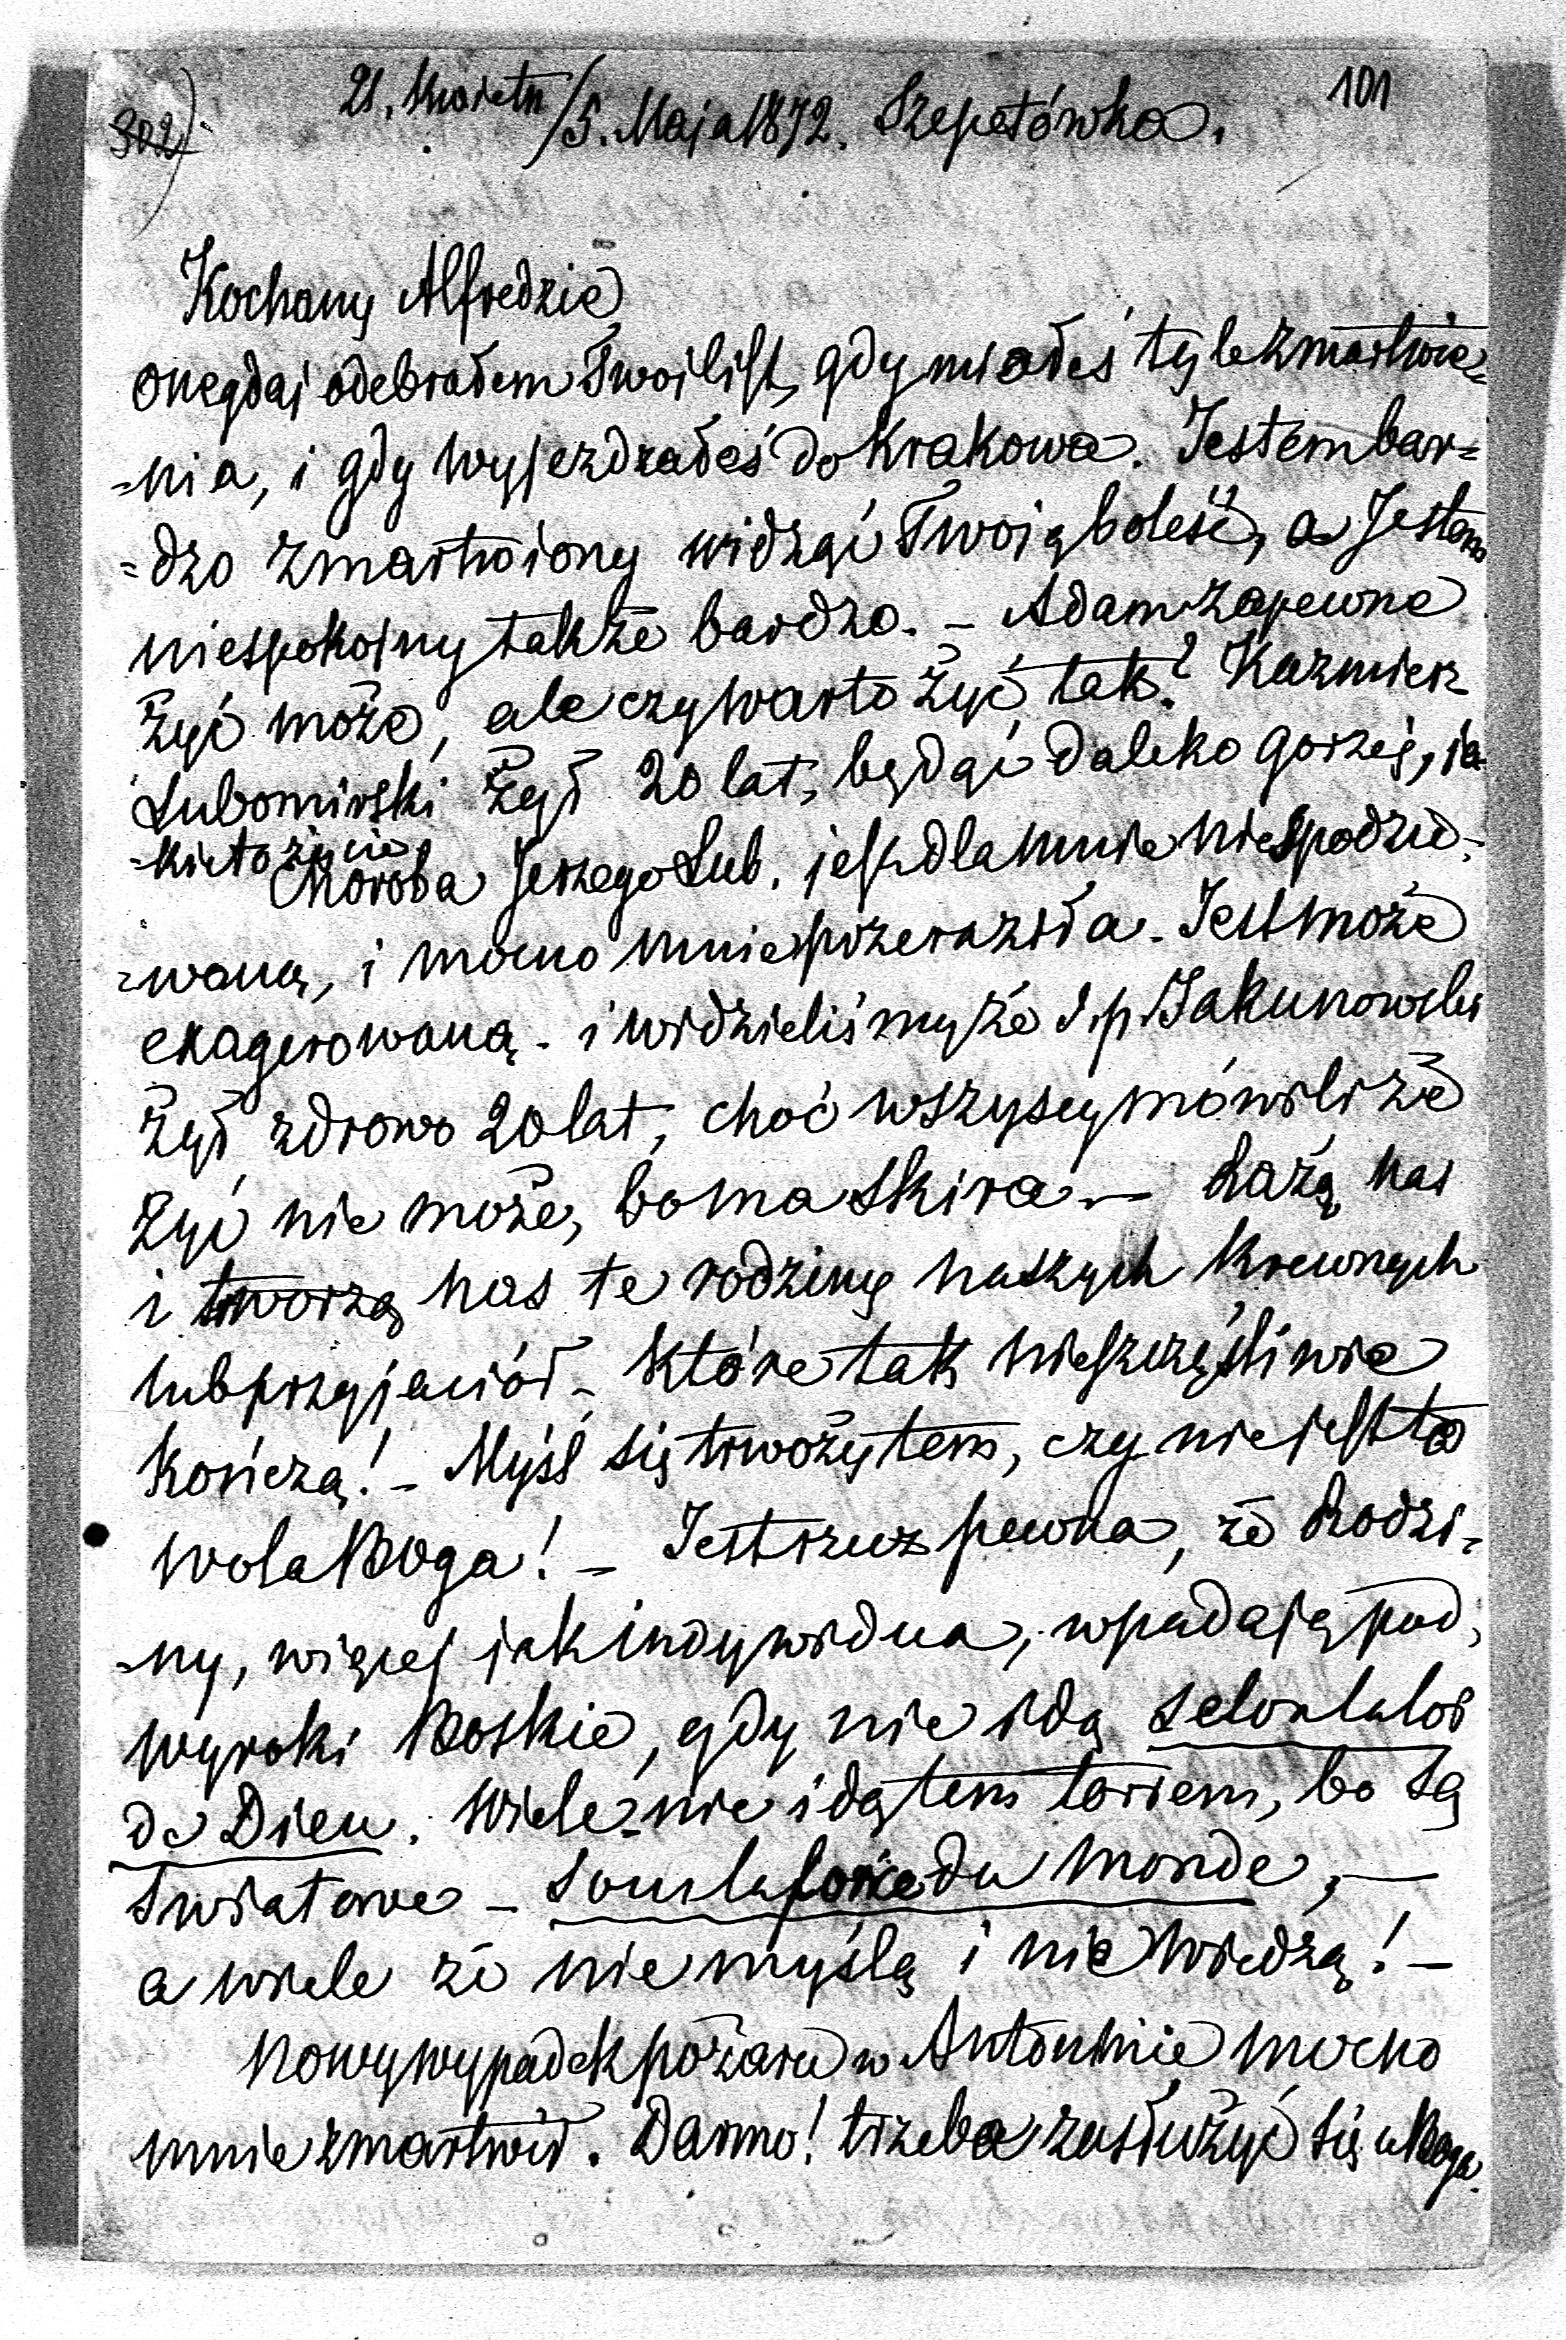 101
21. Kwietn/5. Maja 1872. Szepetówka.
302)
Kochany Alfredzie
onegdaj odebrałem Twoi list, gdy miałeś tyle zmartwie=
=nia, i gdy wyjezdzałeś do Krakowa. Jestem bar=
=dzo zmartwiony widząć Twoią boleść, a Jestem
niespokojny także bardzo. – Adam zapewne
żyć może, ale czy warto żyć tak? Kazmierz
Lubomirski żył 20 lat, będąć daleko gorzej, ja
=kie to życie
Choroba Jerzego Lub. jest dla mnie niespodzie=
=waną, i mocno mnie przeraziła. Jest może
exagerowaną – i widzieliśmy że ś.p. Jakunowski
żył zdrowo 20 lat, choć wszyscy mówili że
żyć nie może, bo ma skira – Rażą nas
i trworzą nas te rodziny naszych Krewnych
lub przyjaciół – które tak nieszczęśliwie
Kończą! – Myśl się trwoży tem, czy nie jest to
wola Boga! – Jest rzecz pewna, że Rodzi=
=ny, więcej jak indywidua, wpadają pod
wyroki Boskie, gdy nie idą selon la loi
de Dieu. Wiele nie idą tem torem, bo są
Światowe – sous la force du monde, —
a wiele że nie myślą i nie wiedzą! –
Nowy wypadek pożaru w Antoninie mocno
mnie zmartwił. Darmo! trzeba zasłużyć się u Boga.